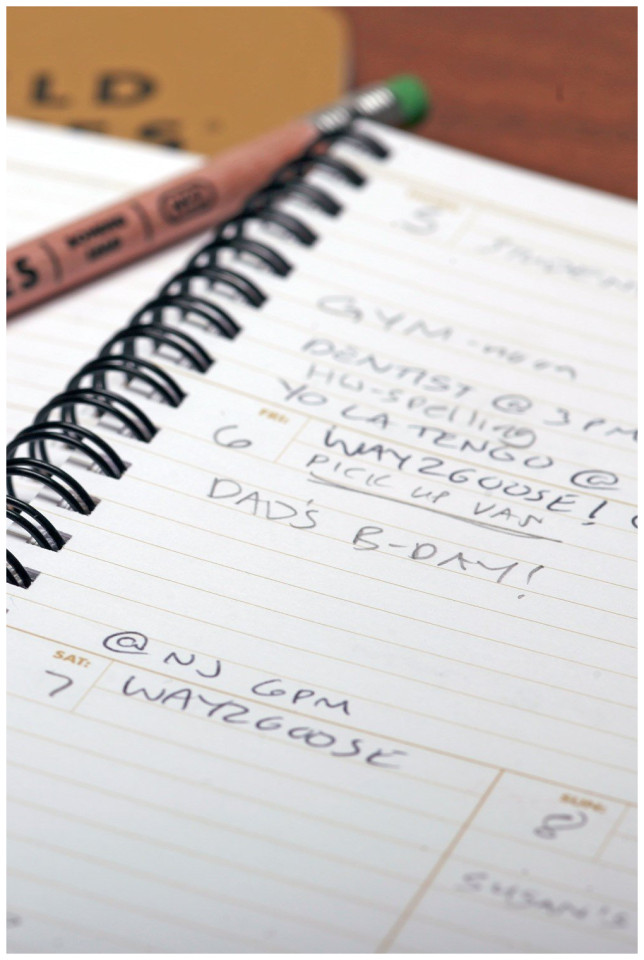 LD
ES
5
GYM - noon
DENTIST @ 3 PM
HW-spelling
YO LA TENGO @
FRI:
6 WAYZGOOSE!
PICK UP VAN
DAD'S B-DAY!
@ NJ 6PM
SAT:
7 WAYZGOOSE
SUN:
8
SUSAN'S